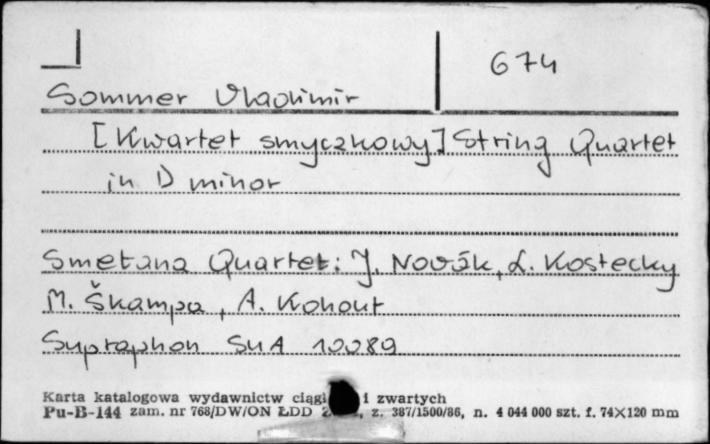 674
Sommer Vladimir
[Kwartet smyczkowy] String Quartet
in D minor
Smetana Quartet: J. Novák, L. Kostecky
M. Škampa, A. Kohout
Supraphon SUA 10089
Karta katalogowa wydawnictw i zwartych
Pu-B-144 zam. nr 768/DW/ON ŁDD z. 387/1500/86, n. 4 044 000 szt. f. 74×120 mm